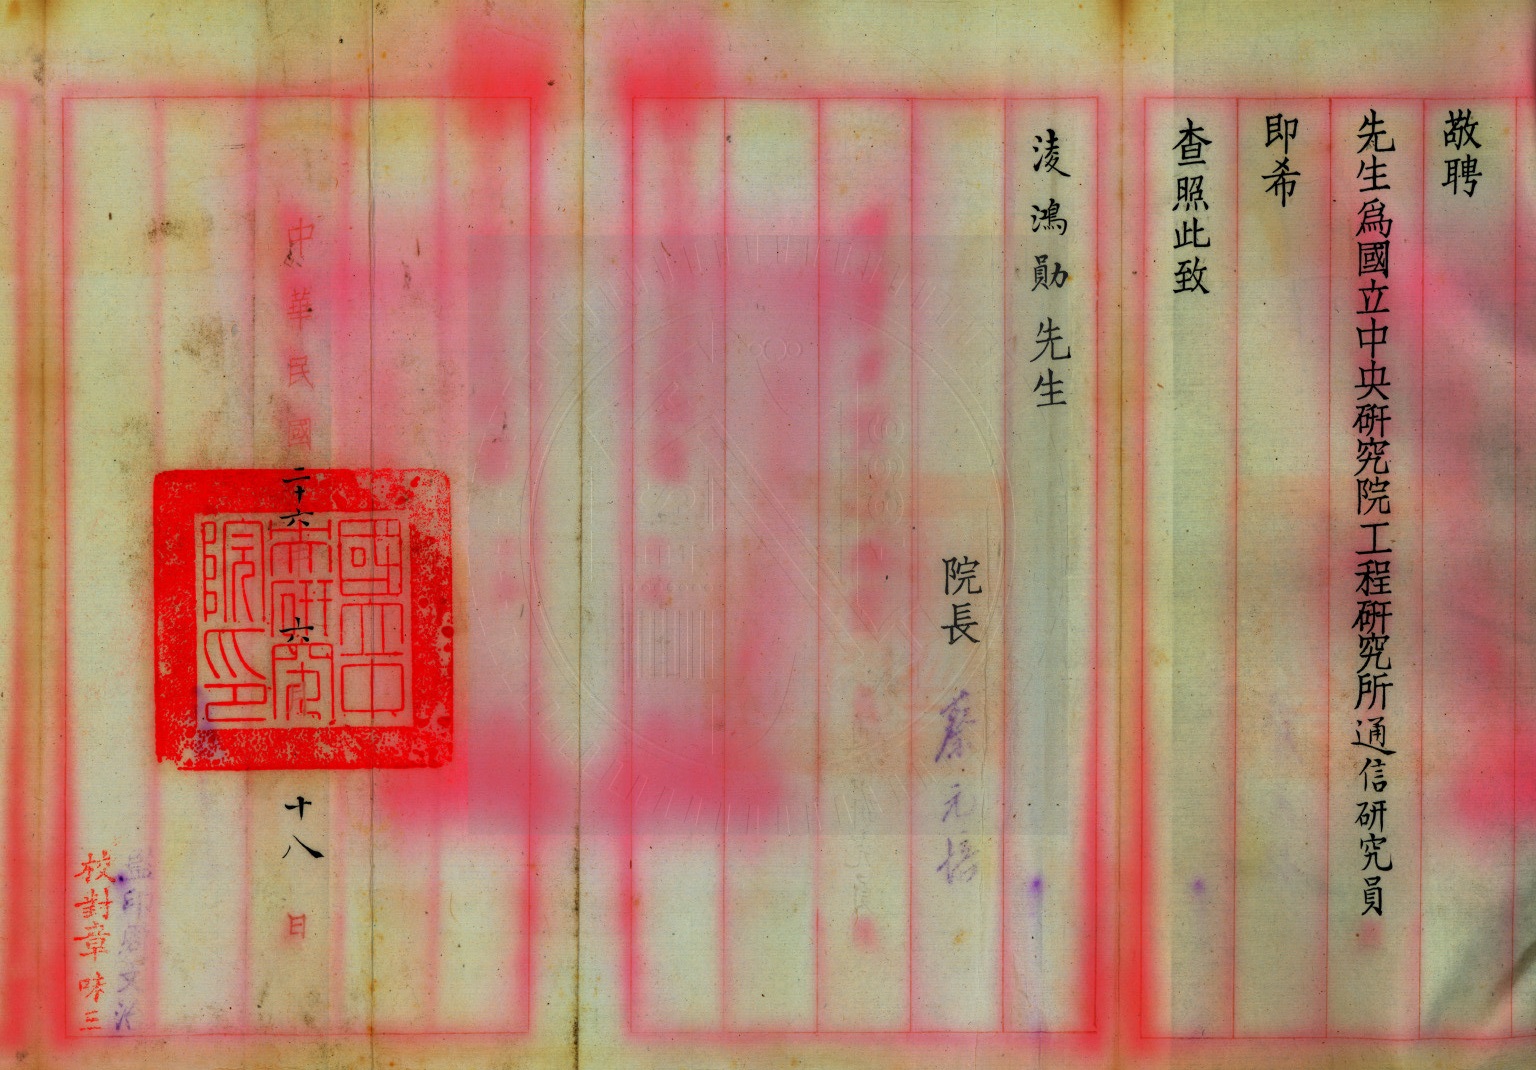 敬聘
先生為國立中央研究院工程研究所通信研究員
即希
查照此致
淩鴻勛先生
院長 蔡元培
中華民國二十六年六月十八日
國立中央研究院印
監印
校對章